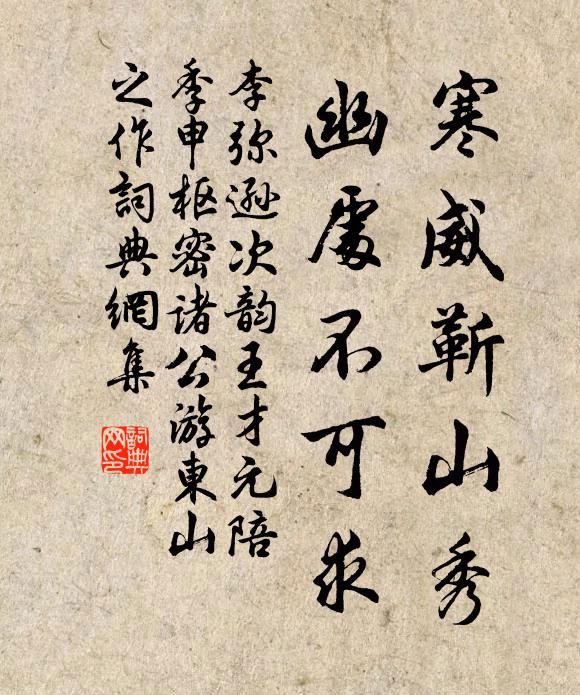 寒威蕲山秀
幽處不可求
李弥遜次韵王才元陪
季申枢密诸公游東山
之作詞典網集
詞典
网印